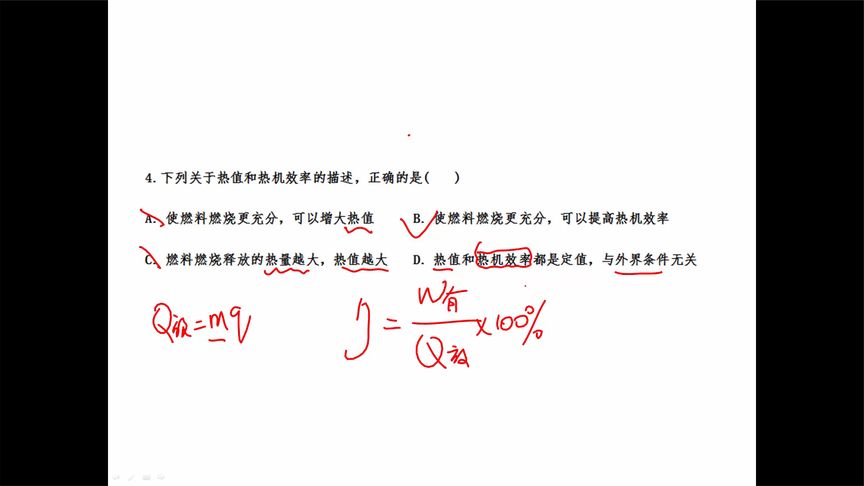 4. 下列关于热值和热机效率的描述，正确的是(　　)
A. 使燃料燃烧更充分，可以增大热值　B. 使燃料燃烧更充分，可以提高热机效率
C. 燃料燃烧释放的热量越大，热值越大　D. 热值和热机效率都是定值，与外界条件无关
Q放=mq　η=W有/Q放×100%